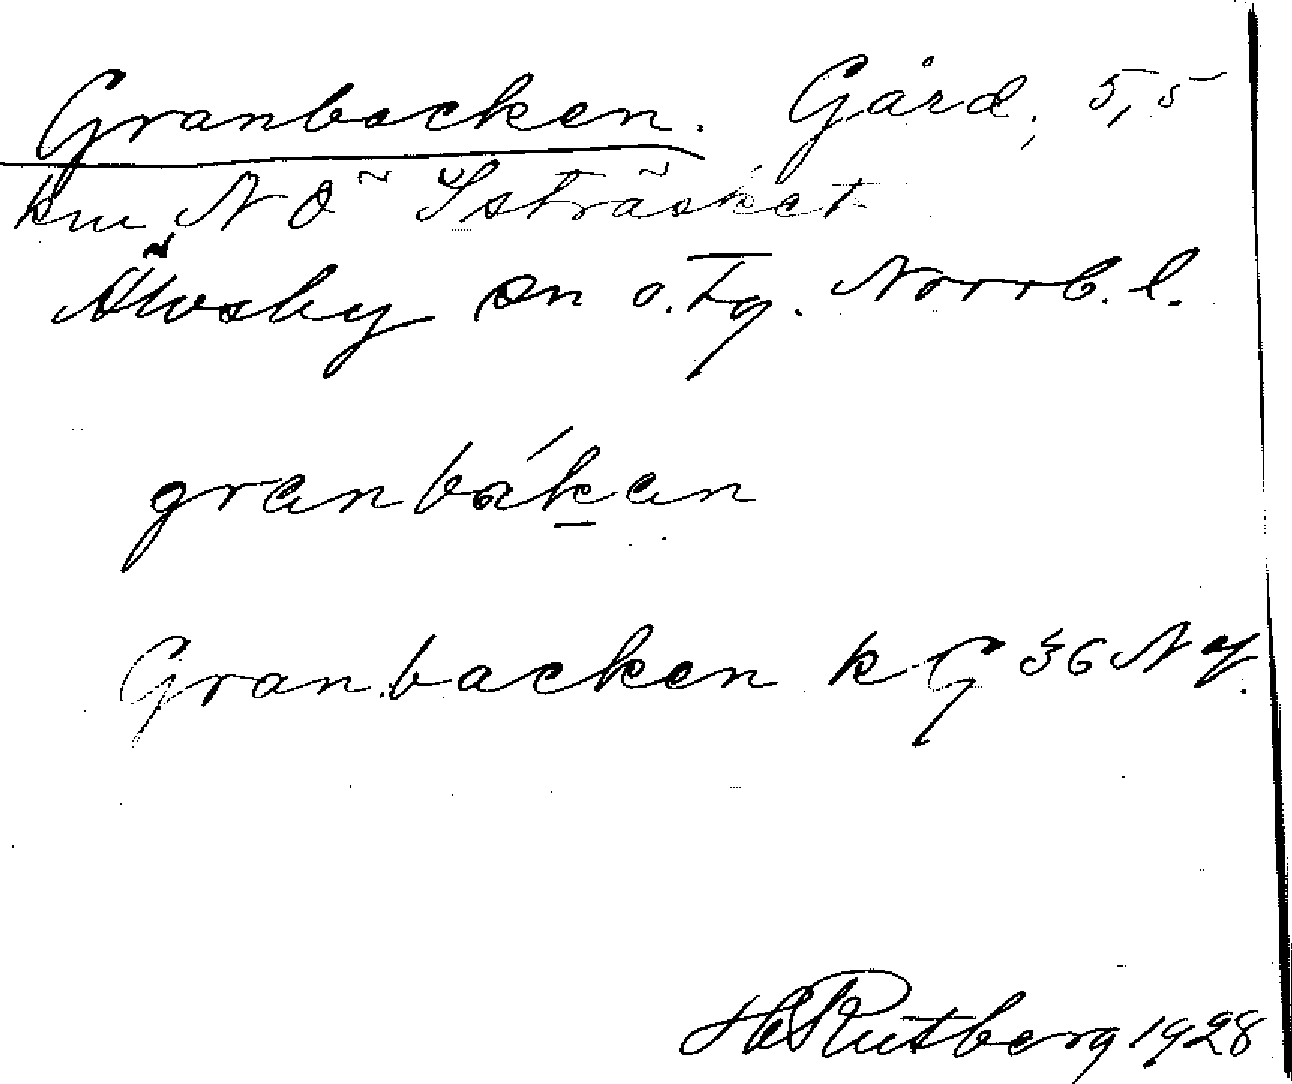 Granbacken. Gård, 5,5
km NÖ Isträsket
Älvsby sn o. Tg. Norrb. l.
granbákan
Granbacken k G 36 N y.
H Rutberg 1928